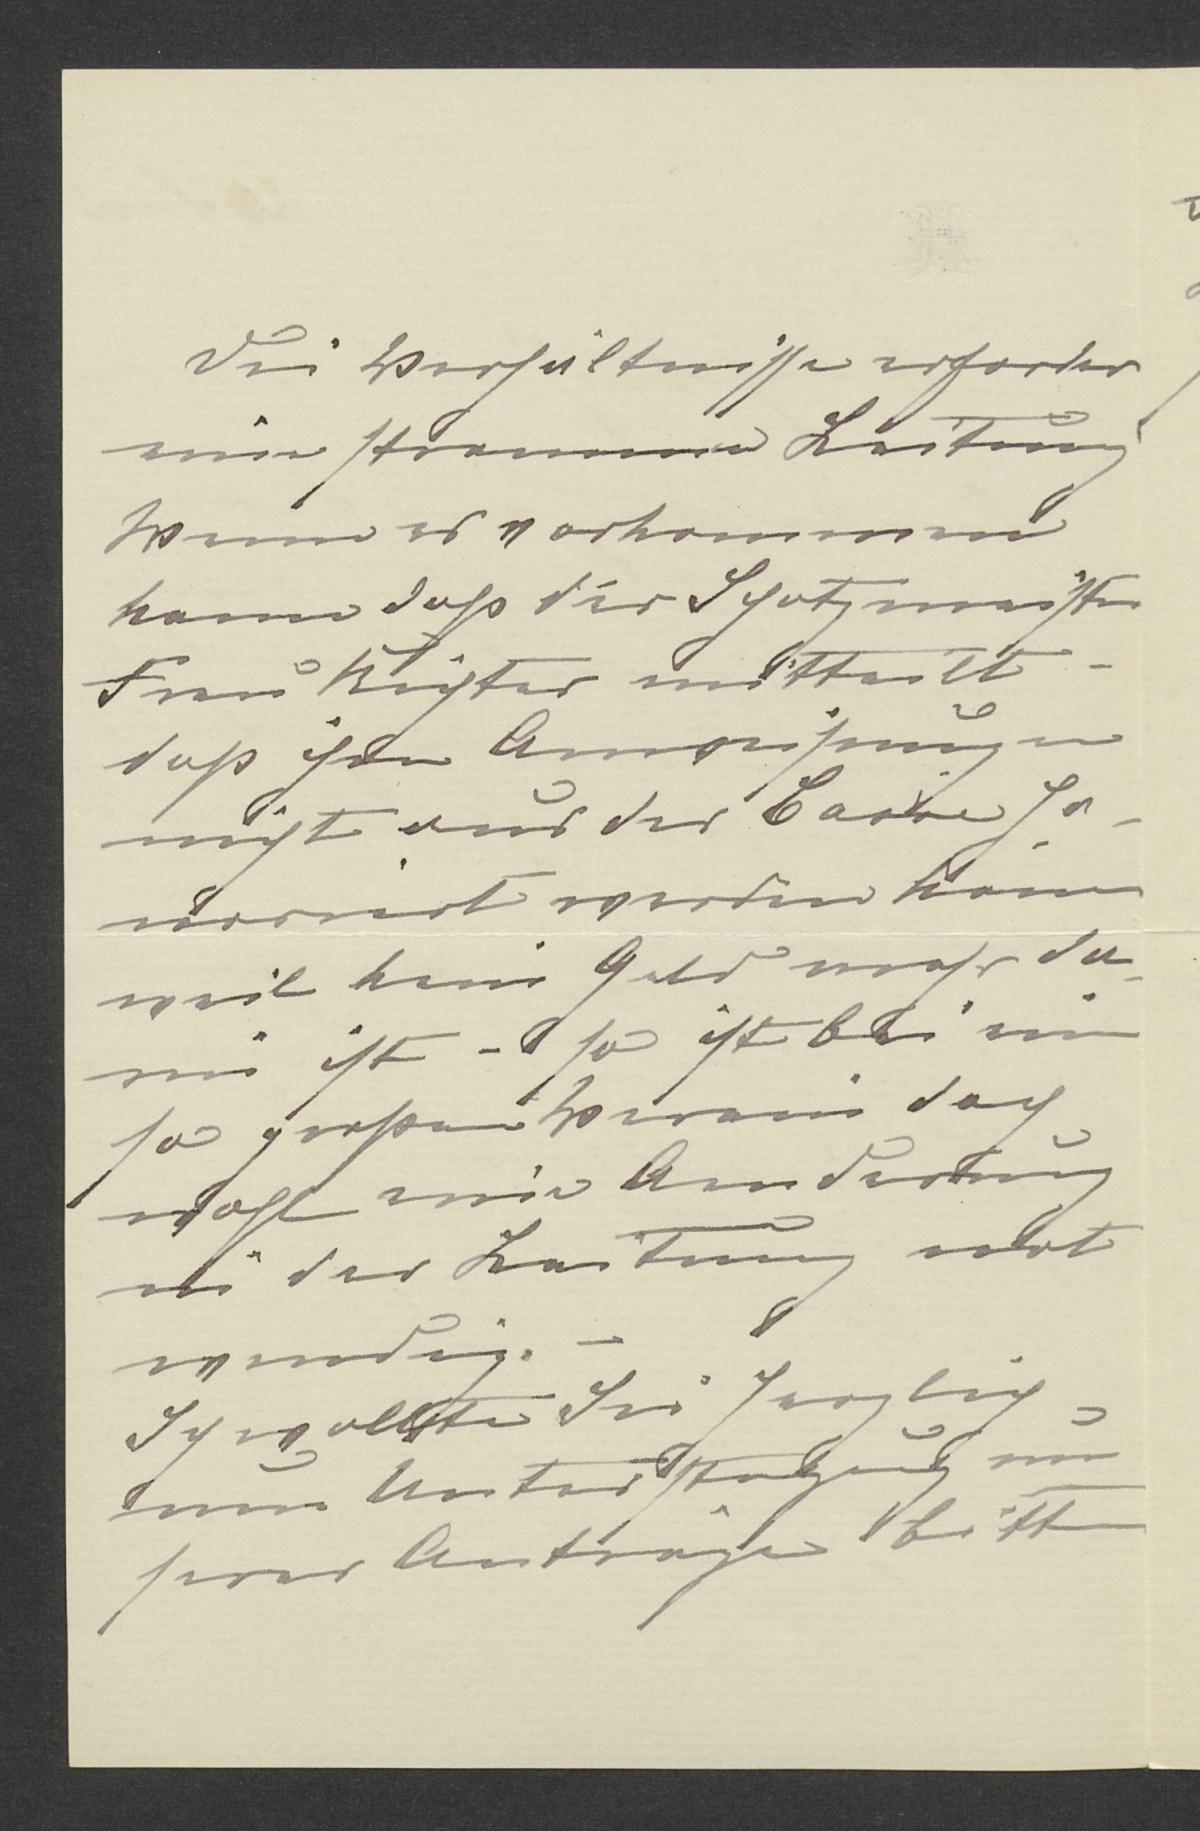 Die Verhältnisse erforder
eine stramme Leitung
Wenn es vorkommen
kann daß der Schatzmeister
Frau Richter mitteilt -
daß ihre Anweisungen
nicht aus der Casse ho-
noriert werden könn
weil kein Geld mehr da-
rin ist - so ist bei ein
so großen Verein doch
wohl eine Aenderung
in der Leitung not
wendig. -
Ich wollte Sie herzlich
um Unterstützung un-
serer Anträge bitt